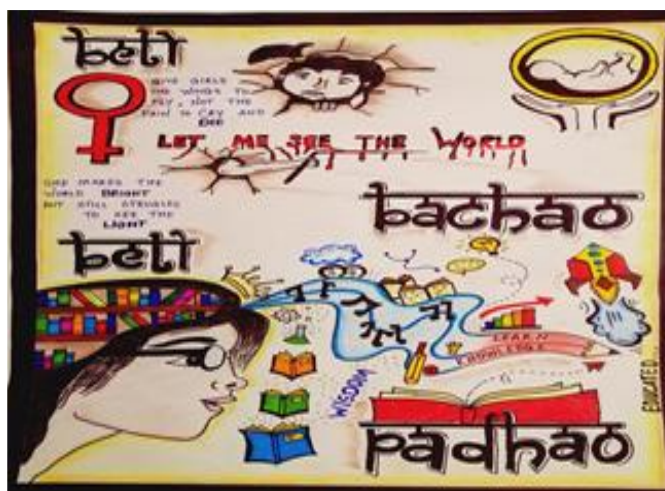 beti
GIVE GIRLS
THE WINGS TO
FLY, NOT THE
PAIN TO CRY AND
DIE
LET ME SEE THE WORLD
SHE MAKES THE
WORLD BRIGHT
BUT STILL STRUGGLES
TO SEE THE
LIGHT
bachao
beti
LEARN
KNOWLEDGE
WISDOM
EDUCATED
padhao